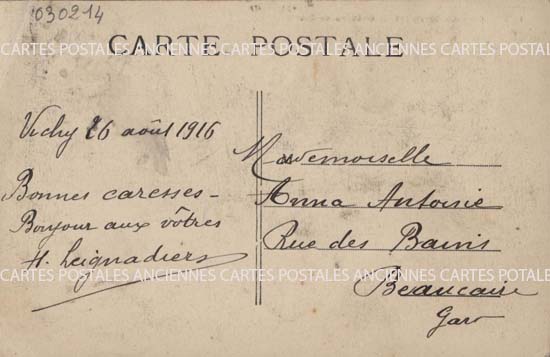 030214
CARTE POSTALE
CARTES POSTALES ANCIENNES CARTES POSTALES ANCIENNES CARTES POSTALES
Vichy 26 août 1916
Bonnes caresses -
Bonjour aux vôtres
Mademoiselle
Anna Antoine
Rue des Bains
Beaucaire
Gard
CARTES POSTALES ANCIENNES CARTES POSTALES ANCIENNES CARTES POTALES